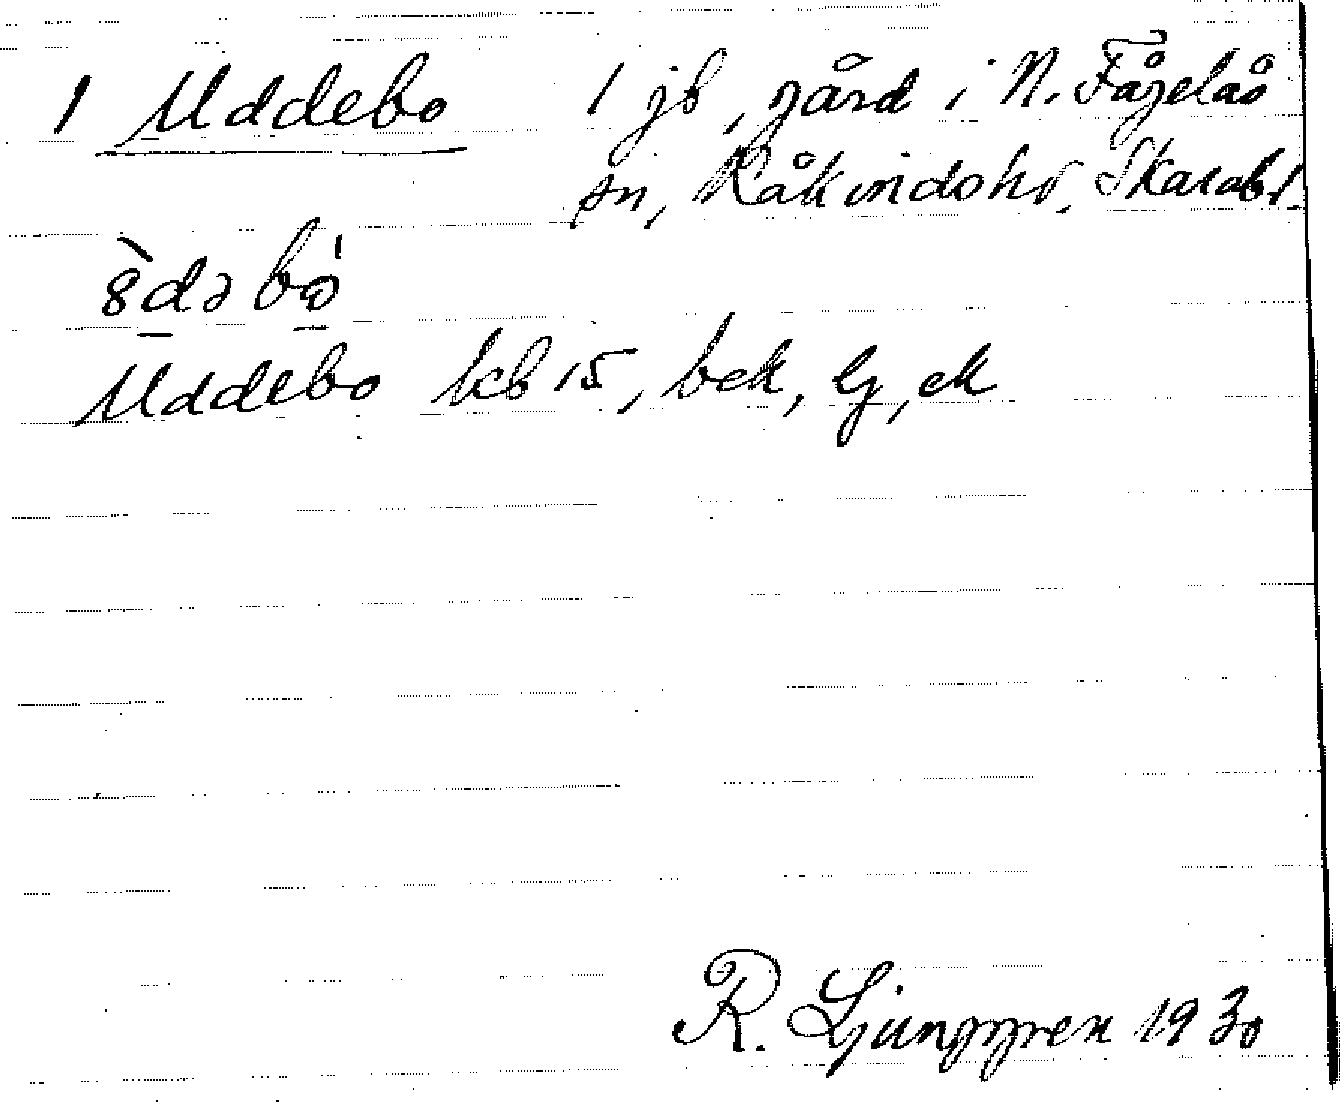 1 Uddebo 1 jb, gård i N. Fågelås
sn, Kåkindshd, Skarabl.
Uddebo kb 15, bek, lg, ek
R. Ljunggren 1930